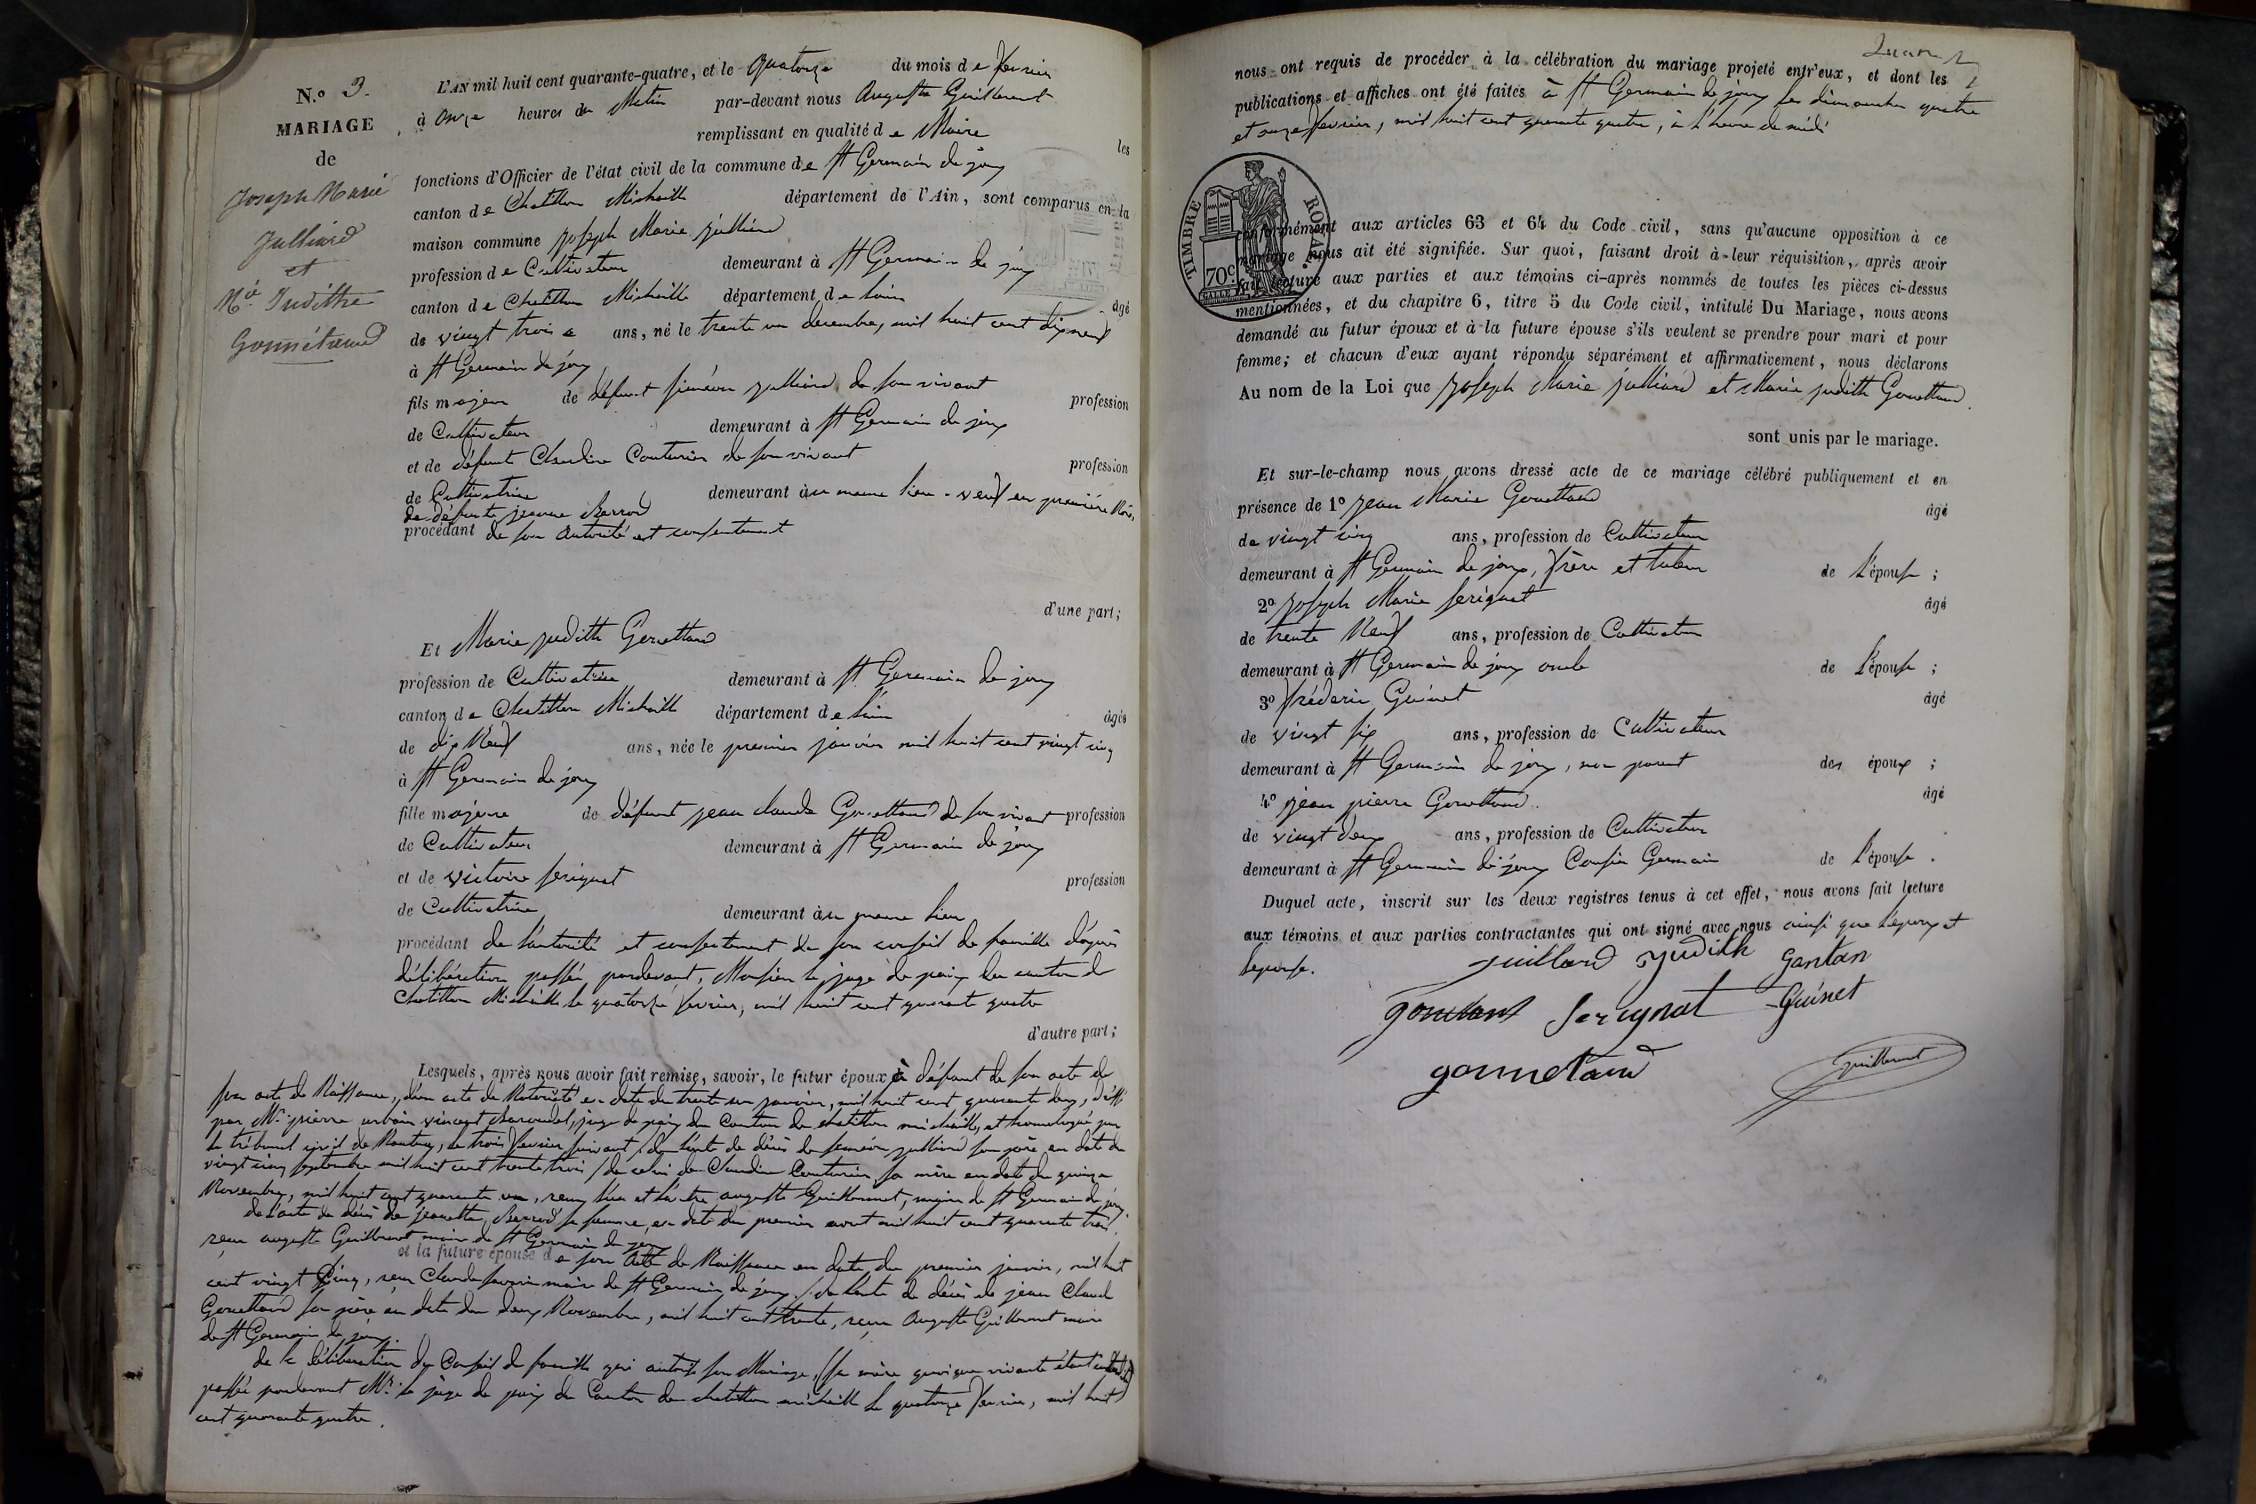 N.º 3.
MARIAGE
de
Joseph Marie
Julliard
et
Mie Judithe
Gonnétrand
L'AN mil huit cent quarante-quatre, et le quatorze du mois de fevrier
à onze heures du Matin par-devant nous Auguste Guillermet
remplissant en qualité de Maire les
fonctions d'Officier de l'état civil de la commune de St Germain de joux
canton de Chatillon Michaille département de l'Ain, sont comparus en la
maison commune Joseph Marie Julliard
profession de Cultivateur demeurant à St Germain de joux
canton de Chatillon Michaille département de l'ain âgé
de vingt trois ans, né le trente un decembre, mil huit cent dix neuf
à St Germain de joux
fils majeur de défunt siméon julliard de son vivant profession
de Cultivateur demeurant à St Germain de joux
et de défunt Claudine Couturier de son vivant profession
de Cultivatrice demeurant au meme lieu - veuf en première Noce,
de défunte jeanne Barrod
procédant de son autorité et consentement
d'une part;
Et Marie judith Gonettand
profession de Cultivatrice demeurant à St Germain de joux
canton de Chatillon Michaille département de l'ain âgée
de dix Neuf ans, née le premier janvier mil huit cent vingt cinq
à St Germain de joux
fille majeure de défunt jean claude Gonettand de son vivant profession
de Cultivateur demeurant à St Germain de joux
et de victoire serignat profession
de Cultivatrice demeurant au meme lieu
procédant de l'autorité et consentement de son conseil de famille d'après
délibération passée pardevant, Monsieur le juge de paix du canton de
Chatillon Michaille le quatorze fevrier, mil huit cent quarante quatre
d'autre part;
Lesquels, après nous avoir fait remise, savoir, le futur époux à défaut de son acte de
son acte de Naissance, d'un acte de Notoriété en date du trente un janvier, mil huit cent quarante deux,
par Mr. pierre urbain vincent juge de paix du Canton de chatillon michaille, et homologué par
le tribunal civil de Nantua, le trois fevrier suivant / de l'acte de décès de siméon julliard son père en date du
vingt cinq septembre mil huit cent trente trois / de celui de Claudine Couturier sa mère en date du quinze
Novembre, mil huit cent quarante un, reçu l'un et l'autre auguste Guillermet, maire de St Germain de joux.
de l'acte de décès de jeanette Barrod sa femme, en date du premier avout mil huit cent quarante trois
reçu auguste Guillermet maire de St Germain de joux
et la future épouse de son Acte de Naissance en date du premier janvier, mil huit
cent vingt Cinq, reçu Claude maire de St Germain de joux / de l'acte de décès de jean Claude
Gonettand son père en date du deux Novembre, mil huit cent trente, reçu Auguste Guillermet maire
de St Germain de joux.
de la délibération du Conseil de famille qui autorise son Mariage, (sa mère quoique vivante étant
passée pardevant Mr. le juge de paix du Canton de chatillon michaille le quatorze fevrier, mil huit
cent quarante quatre.
nous ont requis de procéder à la célébration du mariage projeté entr'eux, et dont les
publications et affiches ont été faites à St Germain de joux les dimanches quatre
et onze fevrier, mil huit cent quarante quatre, à l'heure de midi
TIMBRE ROYAL
70c.
conformément aux articles 63 et 64 du Code civil, sans qu'aucune opposition à ce
mariage nous ait été signifiée. Sur quoi, faisant droit à leur réquisition, après avoir
fait lecture aux parties et aux témoins ci-après nommés de toutes les pièces ci-dessus
mentionnées, et du chapitre 6, titre 5 du Code civil, intitulé Du Mariage, nous avons
demandé au futur époux et à la future épouse s'ils veulent se prendre pour mari et pour
femme; et chacun d'eux ayant répondu séparément et affirmativement, nous déclarons
Au nom de la Loi que Joseph Marie julliard et Marie judith Gonettand
sont unis par le mariage.
Et sur-le-champ nous avons dressé acte de ce mariage célébré publiquement et en
présence de 1º jean Marie Gonettand âgé
de vingt cinq ans, profession de Cultivateur
demeurant à St Germain de joux, frère et tuteur de l'épouse;
2º Joseph Marie serignat âgé
de trente Neuf ans, profession de Cultivateur
demeurant à St Germain de joux oncle de l'épouse;
3º fréderic Guinet âgé
de vingt six ans, profession de Cultivateur
demeurant à St Germain de joux, non parent des époux;
4º jean pierre Gonettand. âgé
de vingt deux ans, profession de Cultivateur
demeurant à St Germain de joux Cousin Germain de l'épouse.
Duquel acte, inscrit sur les deux registres tenus à cet effet, nous avons fait lecture
aux témoins et aux parties contractantes qui ont signé avec nous ainsi que l'epoux et
l'epouse.
juillard judith gontan
Serignat Guinet
gonnetand
Guillermet